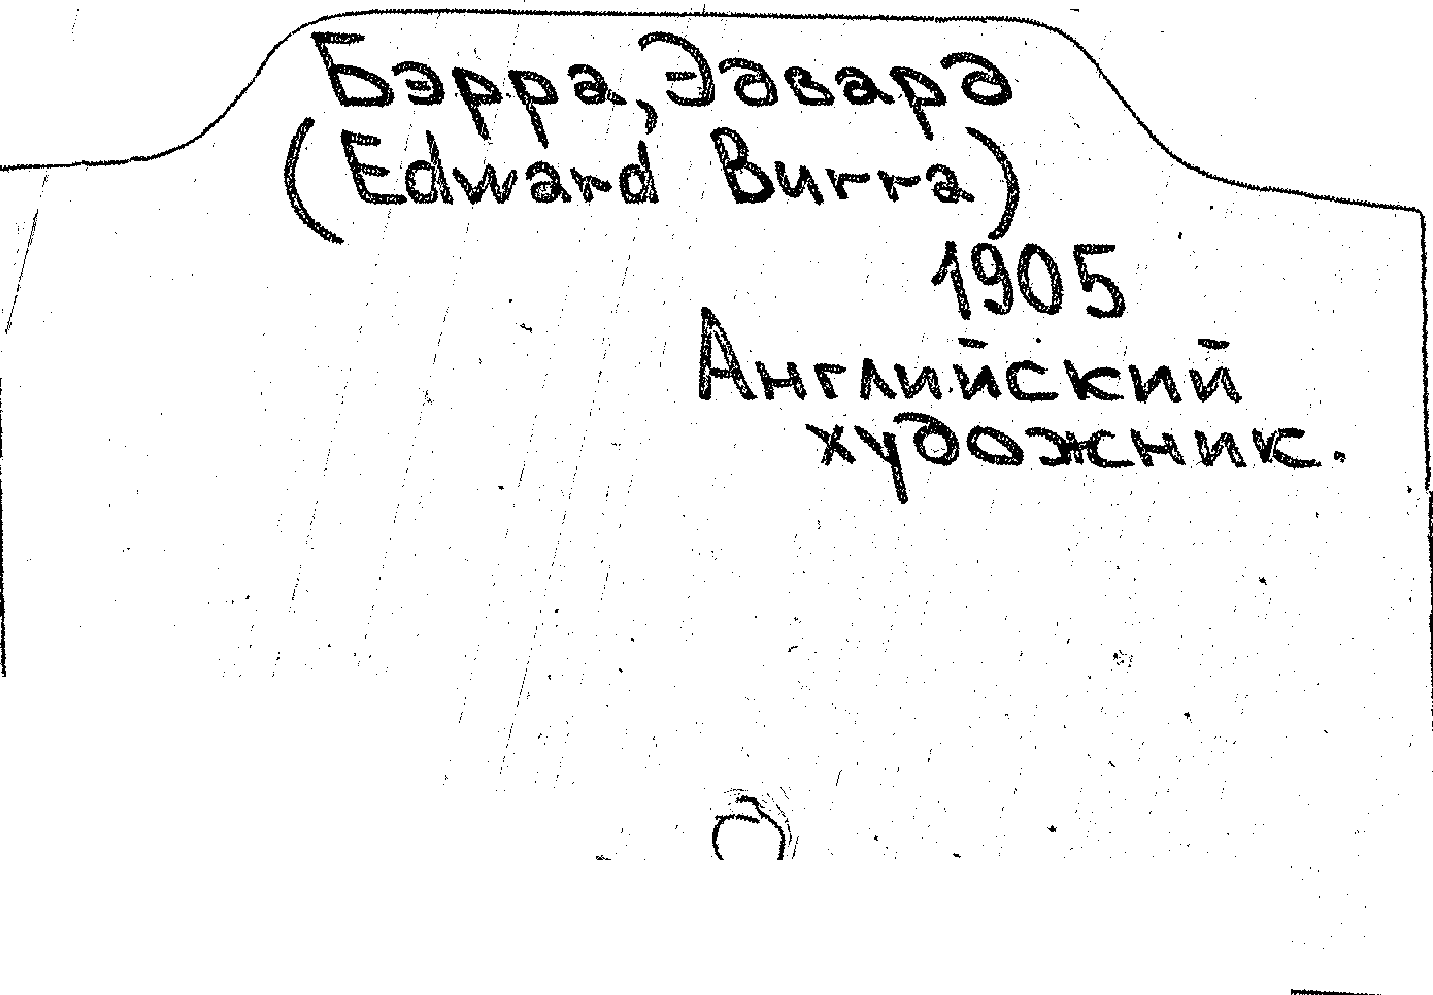 Бэрра, Эдвард
(Edward Burra)
1905
Английский
художник.